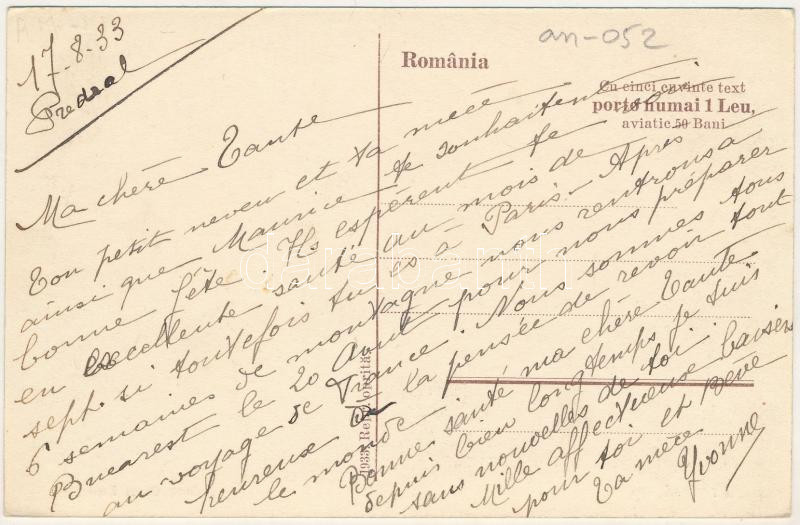 17-8-33
Predeal
an-052
România
Cu cinci cuvinte text
porto numai 1 Leu,
aviatie 50 Bani
Ma chère Tante
Ton petit neveu et ta nièce
ainsi que Maurice te souhaitent
bonne fête. Ils espèrent te voir
en excellente santé au mois de
sept. si toutefois tu es à Paris. Après
6 semaines de montagne nous rentrons à
Bucarest le 20 Août pour nous préparer
au voyage de France. Nous sommes tous
heureux à la pensée de revoir tout
le monde.
Bonne santé ma chère Tante
depuis bien longtemps je suis
sans nouvelles de toi.
Mille affectueux baisers
pour toi et Bébé
Ta nièce
Yvonne
darabanth